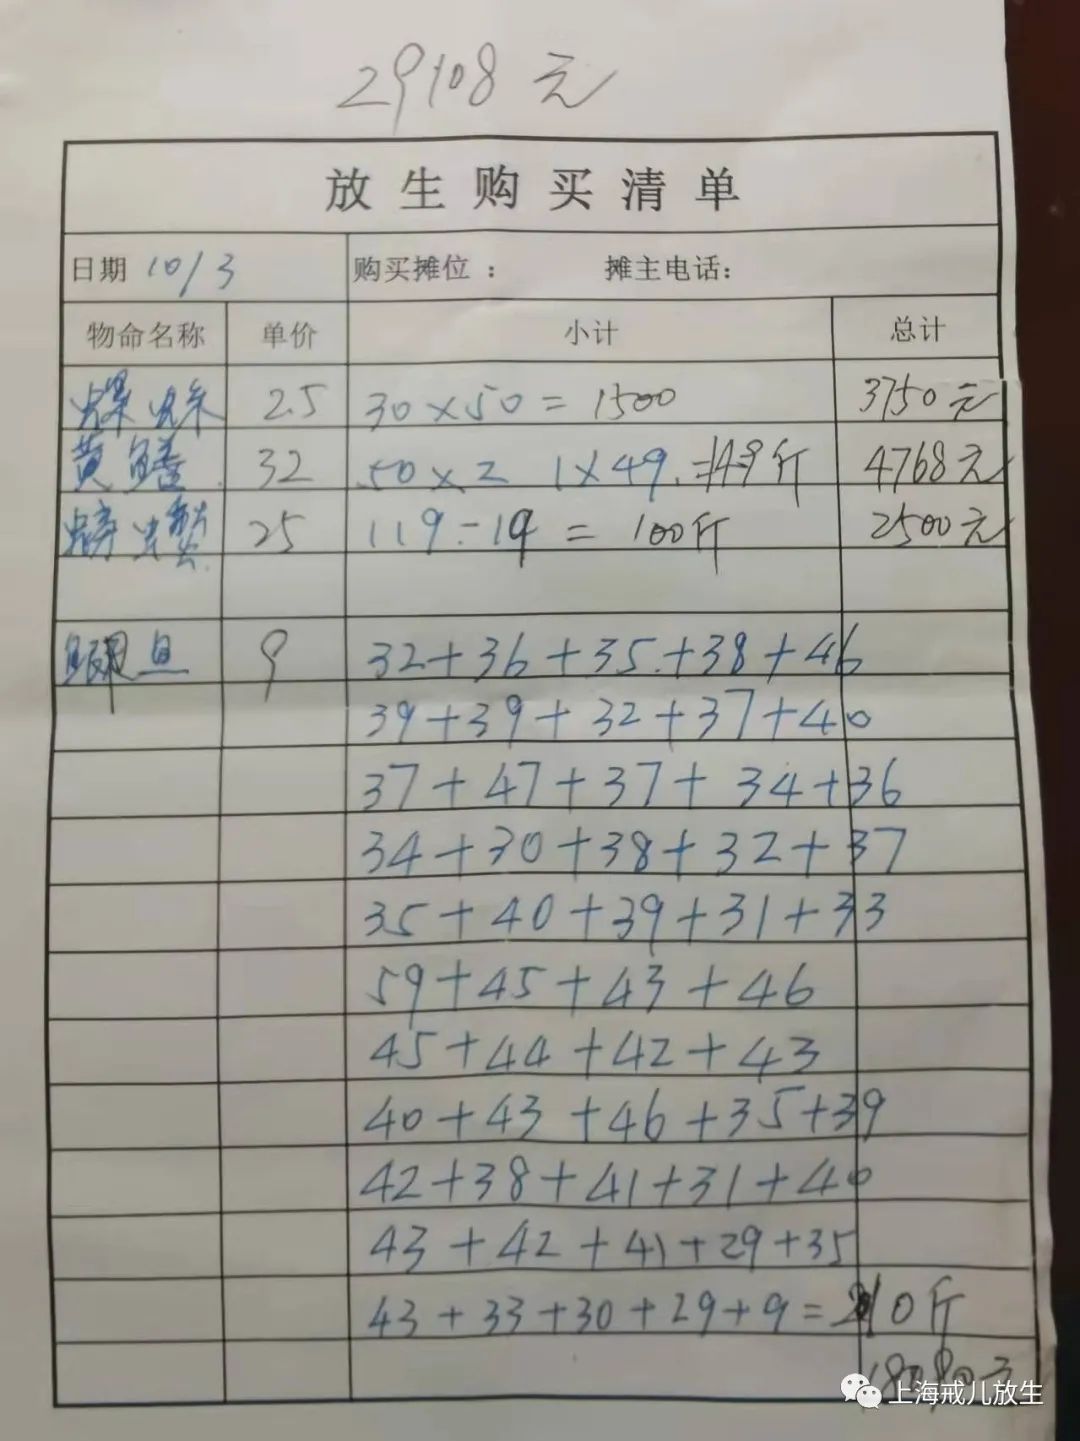 29108元
放生购买清单
日期 10/3 购买摊位： 摊主电话:
物命名称 单价 小计 总计
螺蛳 2.5 30×50=1500 3750元
黄鳝 32 50×2 1×49.=149斤 4768元
螃蟹 25 119-19=100斤 2500元
鱼 9 32+36+35.+38+46
39+39+32+37+40
37+47+37+34+36
34+30+38+32+37
35+40+39+31+33
59+45+43+46
45+44+42+43
40+43+46+35+39
42+38+41+31+40
43+42+41+29+35
43+33+30+29+9= 10斤
上海戒儿放生